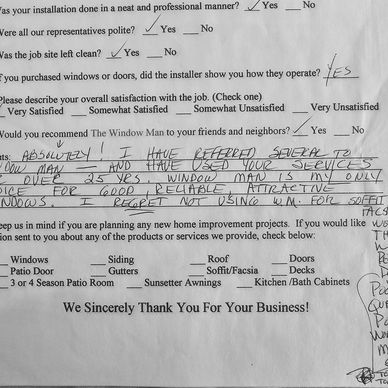 as your installation done in a neat and professional manner? ✓ Yes __ No
Were all our representatives polite? ✓ Yes __ No
Was the job site left clean? ✓ Yes __ No
f you purchased windows or doors, did the installer show you how they operate? YES
Please describe your overall satisfaction with the job. (Check one)
✓ Very Satisfied __ Somewhat Satisfied __ Somewhat Unsatisfied __ Very Unsatisfied
Would you recommend The Window Man to your friends and neighbors? ✓ Yes __ No
nts: ABSOLUTELY! I HAVE REFERRED SEVERAL TO
WINDOW MAN — AND HAVE USED YOUR SERVICES
OVER 25 YRS. WINDOW MAN IS MY ONLY
OICE FOR GOOD, RELIABLE, ATTRACTIVE
NDOWS. I REGRET NOT USING W.M. FOR SOFFIT
eep us in mind if you are planning any new home improvement projects. If you would like
tion sent to you about any of the products or services we provide, check below:
__ Windows __ Siding __ Roof __ Doors
__ Patio Door __ Gutters __ Soffit/Facsia __ Decks
__ 3 or 4 Season Patio Room __ Sunsetter Awnings __ Kitchen/Bath Cabinets
We Sincerely Thank You For Your Business!